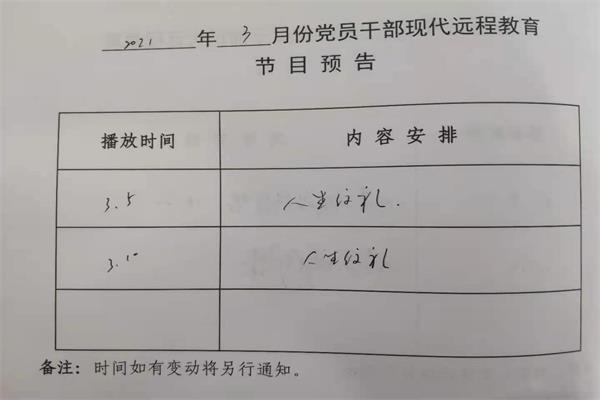 2021年3月份党员干部现代远程教育
节目预告
播放时间 内容安排
3.5 人生
3.10 人生
备注：时间如有变动将另行通知。